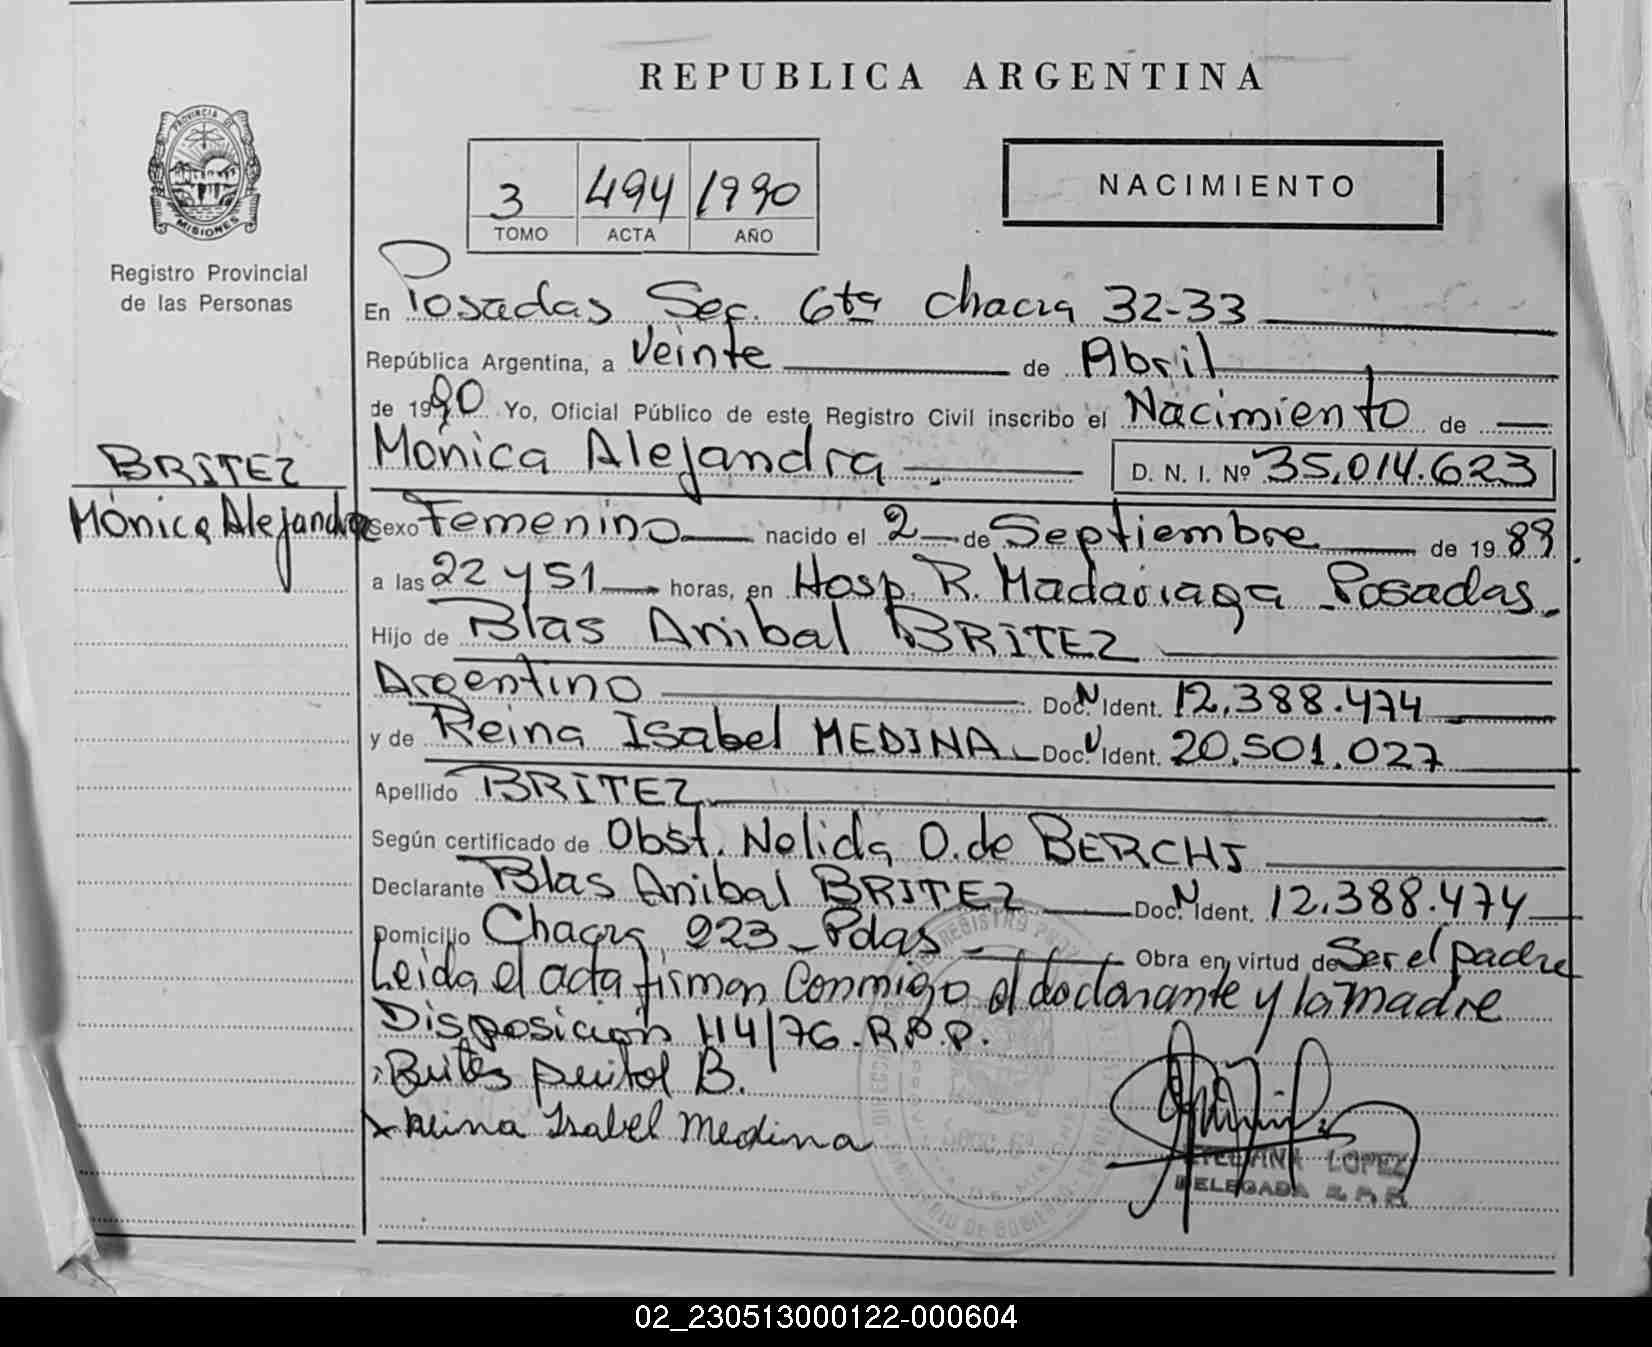 REPUBLICA ARGENTINA
PROVINCIA DE
MISIONES
Registro Provincial
de las Personas
3 494 1990
TOMO ACTA AÑO
NACIMIENTO
En Posadas Sec. 6ta Chacra 32-33
República Argentina, a Veinte de Abril
de 1990 Yo, Oficial Público de este Registro Civil inscribo el Nacimiento de
BRITEZ
Mónica Alejandra
Mónica Alejandra D. N. I. Nº 35.014.623
Sexo Femenino nacido el 2 de Septiembre de 1989.
a las 22 y 51 horas, en Hosp. R. Madariaga Posadas.
Hijo de Blas Anibal BRITEZ
Argentino Doc. N Ident. 12.388.474
y de Reina Isabel MEDINA Doc. N Ident. 20.501.027
Apellido BRITEZ
Según certificado de Obst. Nelida O. de BERCHI
Declarante Blas Anibal BRITEZ Doc. N Ident. 12.388.474
Domicilio Chacra 223 - Pdas - Obra en virtud de Ser el padre
Leida el acta firman conmigo el declarante y la madre
Disposición 114/76. R.P.P.
Reina Isabel Medina
LOPEZ
DELEGADA
02_230513000122-000604